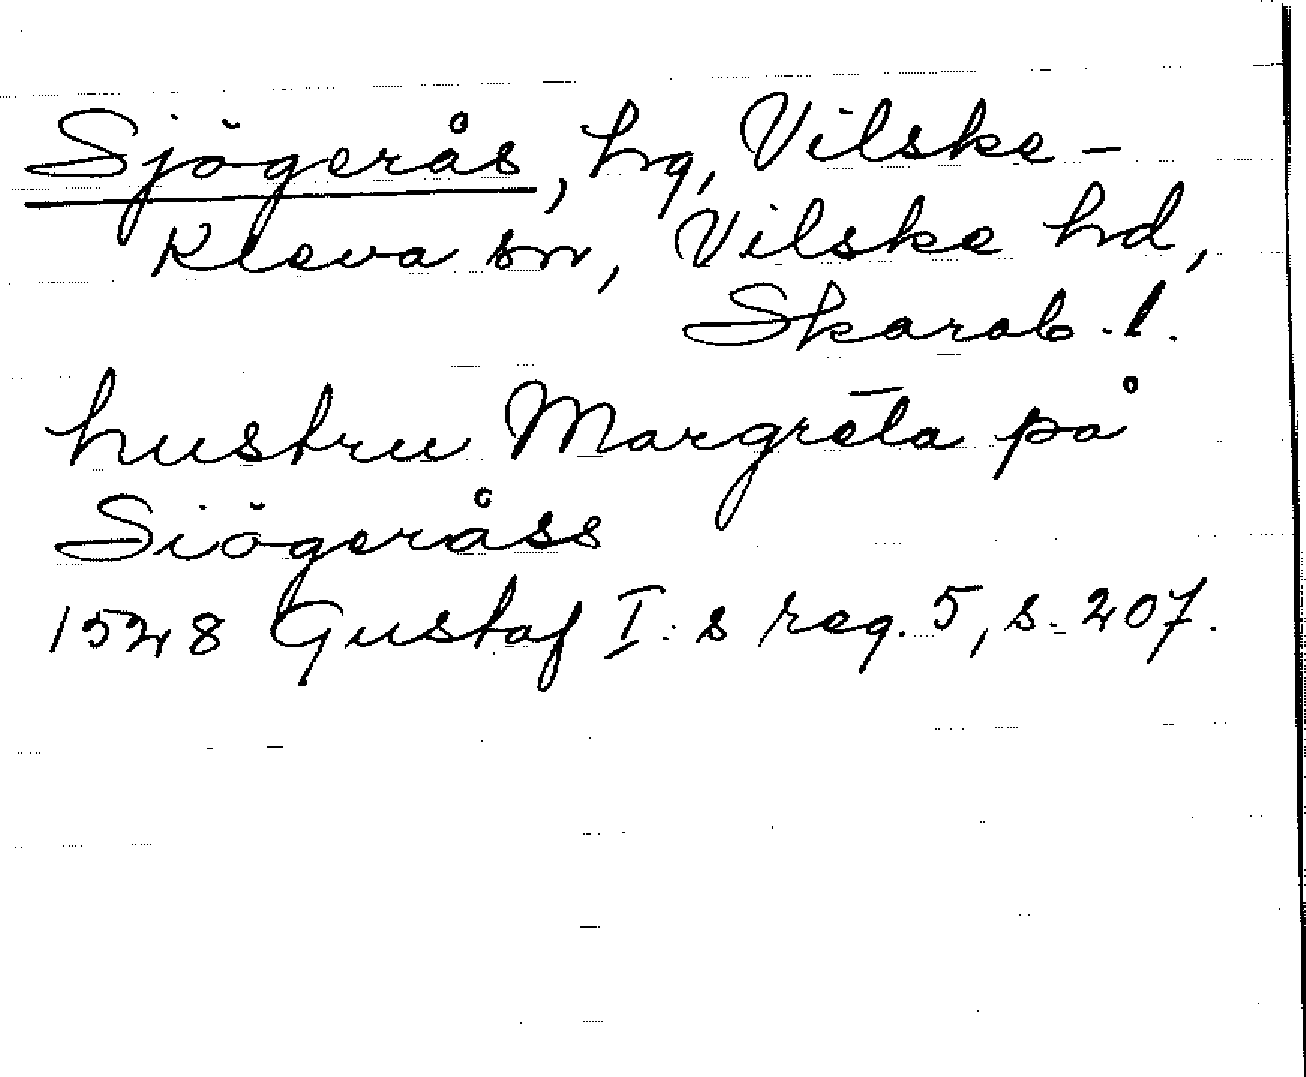 Sjögerås, hg, Vilske-
Kleva sn, Vilske hd,
Skarab. l.
hustru Margrēta på
Siögeråss
1528 Gustaf I:s reg. 5, s. 207.